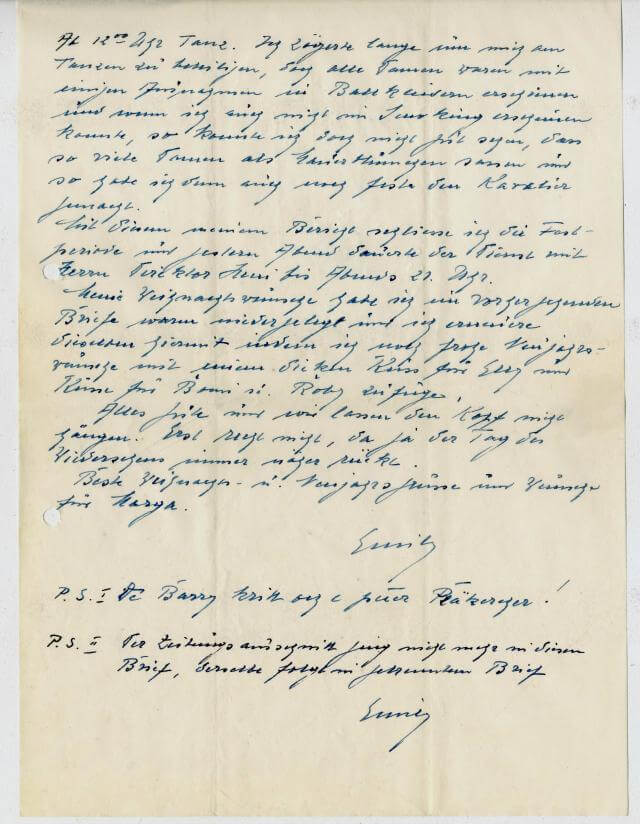 Ab 12⁰⁰ Uhr Tanz. Ich zögerte lange um mich am
Tanzen zu beteiligen, doch alle Damen waren mit
einigen Ausnahmen in Ballkleidern erschienen
und wenn ich auch nicht im Smoking erscheinen
konnte, so konnte ich doch nicht gut sehen, dass
so viele Damen als Mauerblümchen sassen und
so habe ich denn auch noch feste den Kavalier
gemacht.
Mit diesem meinem Bericht schliesse ich die Fest-
periode und gestern Abend dauerte der Dienst mit
Herrn Direktor bis Abends 21. Uhr.
Meine Weihnachtswünsche habe ich im vorhergehenden
Briefe waren niedergelegt und ich erneuere
dieselben hiermit indem ich noch frohe Neujahrs-
wünsche mit einem dicken Kuss für Elly und
Küsse für Bomi u. Roby zufüge.
Alles Gute und wir lassen den Kopf nicht
hängen. Erst recht nicht, da ja der Tag des
Wiedersehens immer näher rückt.
Beste Weihnachts- u. Neujahrsgrüsse und Wünsche
für Marga.
Emil
P.S. I De Barry kritt och e puer
P.S. II Der Zeitungsausschnitt ging nicht mehr in diesen
Brief, derselbe folgt in getrenntem Brief
Emil